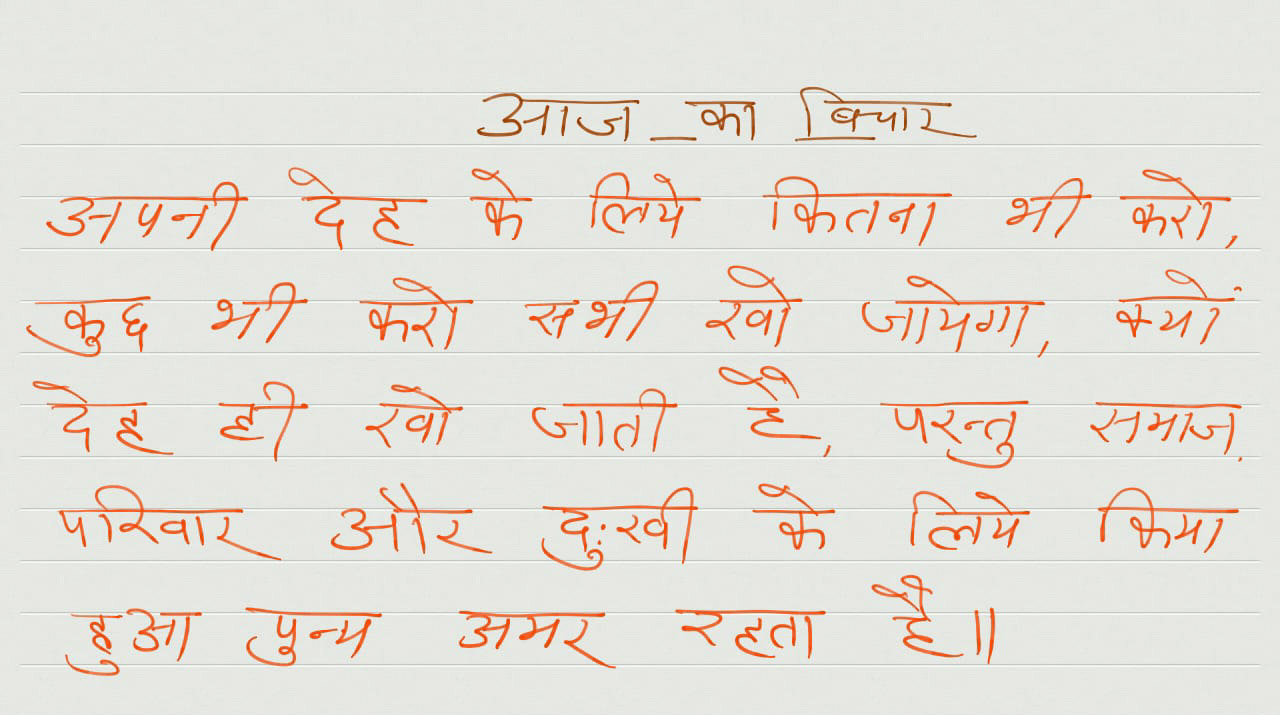 आज का बिचार
अपनी देह के लिये कितना भी करो,
कुछ भी करो सभी खो जायेगा, क्यों
देह ही खो जाती है, परन्तु समाज,
परिवार और दुःखी के लिये किया
हुआ पुन्य अमर रहता है॥